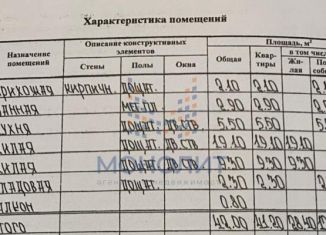 Характеристика помещений
Назначение помещений Описание конструктивных элементов Площадь, м²
Стены Полы Окна Общая Квартиры в том числе
Жилая
рихожая кирпичн. дощат. 2.10 2.10
анная метл. 2.90 2.90
ухня дощат. дв.ств. 5.50 5.50 5.5
илая дощат. дв.ств 19.10 19.10 19.10
илая 9.30 9.30
ладовая дощат. 2.30 2.30
алкон 0.80
того 42.00 41.20 28.40
МОНОЛИТ
агентство недвижимости